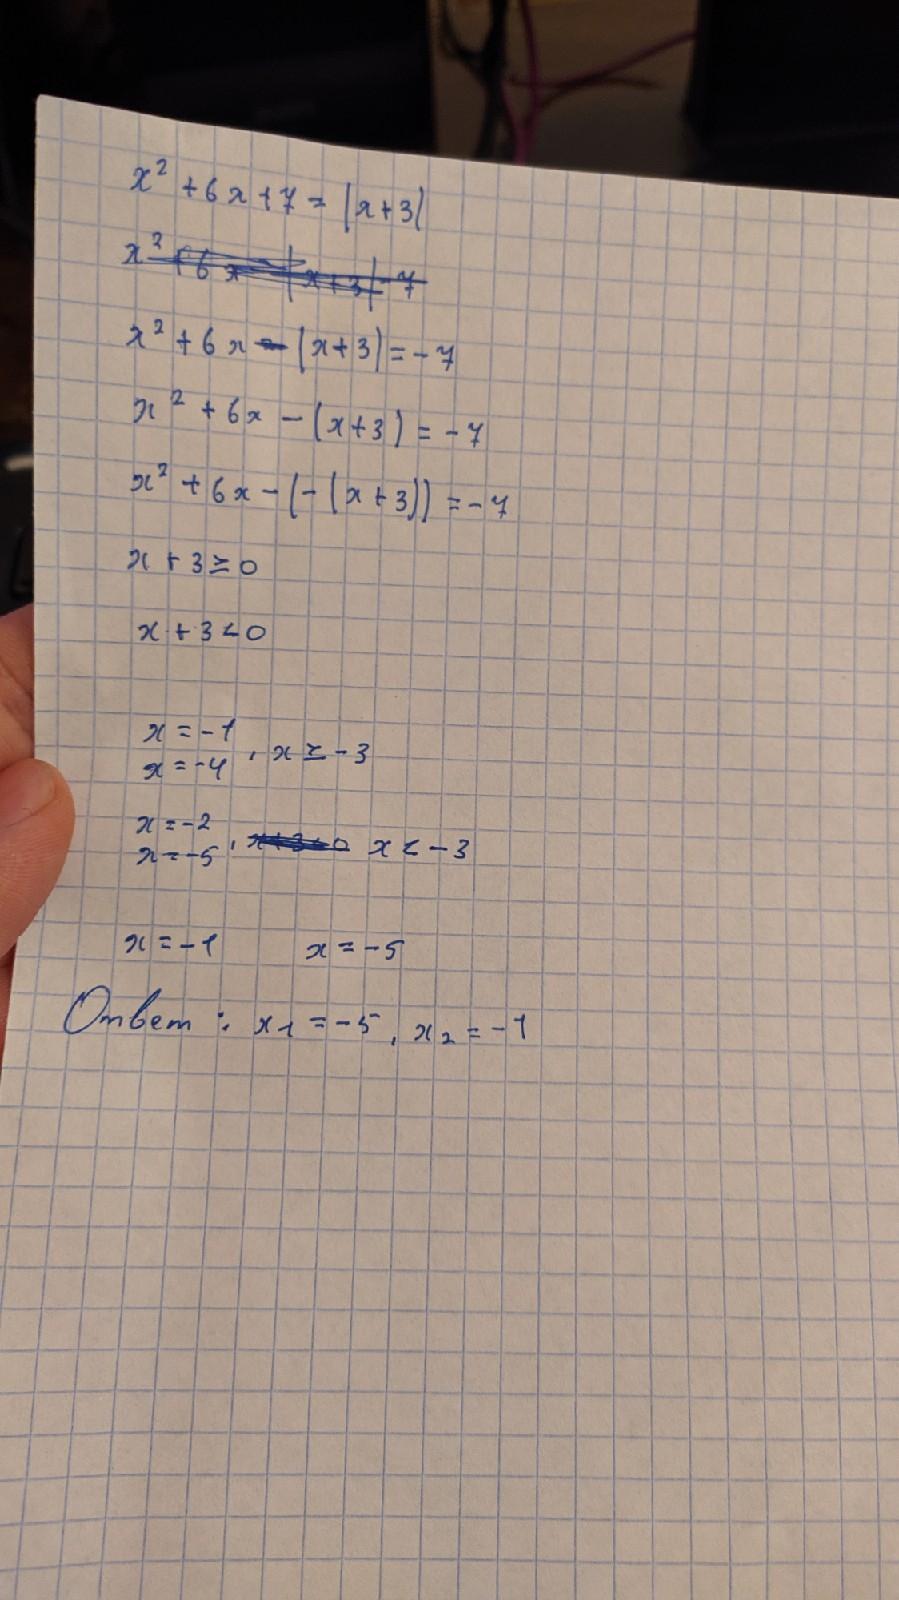 x² + 6x + 7 = |x+3|
x² + 6x - |x+3| = -7
x² + 6x - (x+3) = -7
x² + 6x - (-(x+3)) = -7
x + 3 ≥ 0
x + 3 < 0
x = -1
x = -4 , x ≥ -3
x = -2
x = -5 , x < -3
x = -1 x = -5
Ответ : x₁ = -5, x₂ = -1